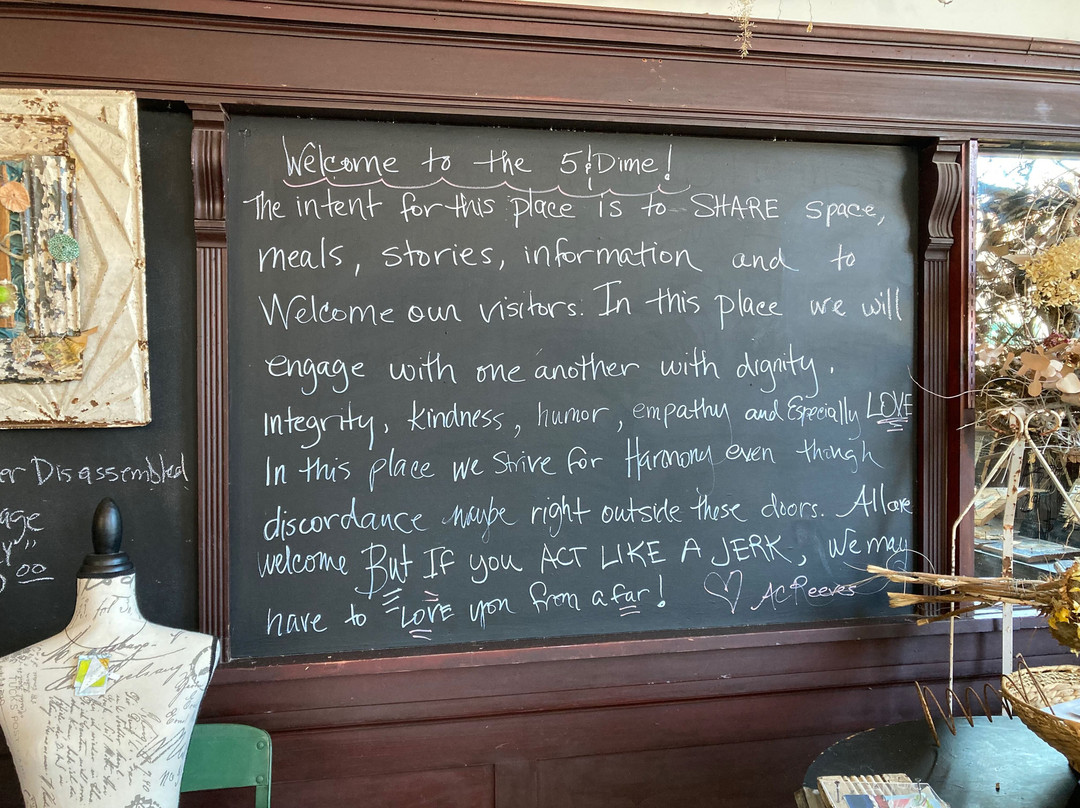 Welcome to the 5 & Dime!
The intent for this place is to SHARE space,
meals, stories, information and to
Welcome our visitors. In this place we will
engage with one another with dignity.
Integrity, kindness, humor, empathy and Especially LOVE
In this place we strive for Harmony even though
discordance maybe right outside these doors. All are
welcome But IF you ACT LIKE A JERK, We may
have to LOVE you from afar! ♡ AC Reeves
er Disassembled
age
y"
00